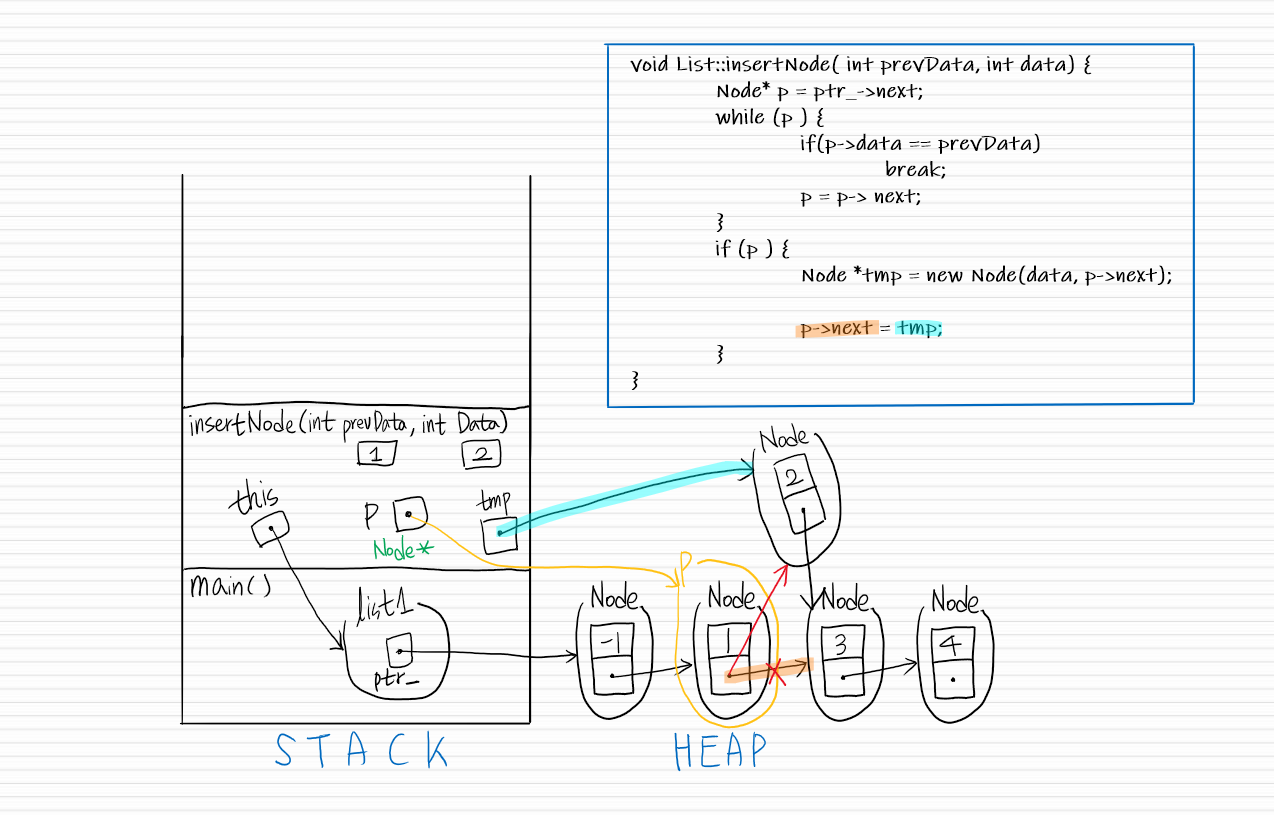 void List::insertNode( int prevData, int data) {
Node* p = ptr_->next;
while (p ) {
if(p->data == prevData)
break;
p = p-> next;
}
if (p ) {
Node *tmp = new Node(data, p->next);
p->next = tmp;
}
}
insertNode(int prevData, int Data)
1 2
this p tmp
Node*
main()
list1
ptr_
Node
2
p
Node Node Node Node
-1 1 3 4
STACK HEAP